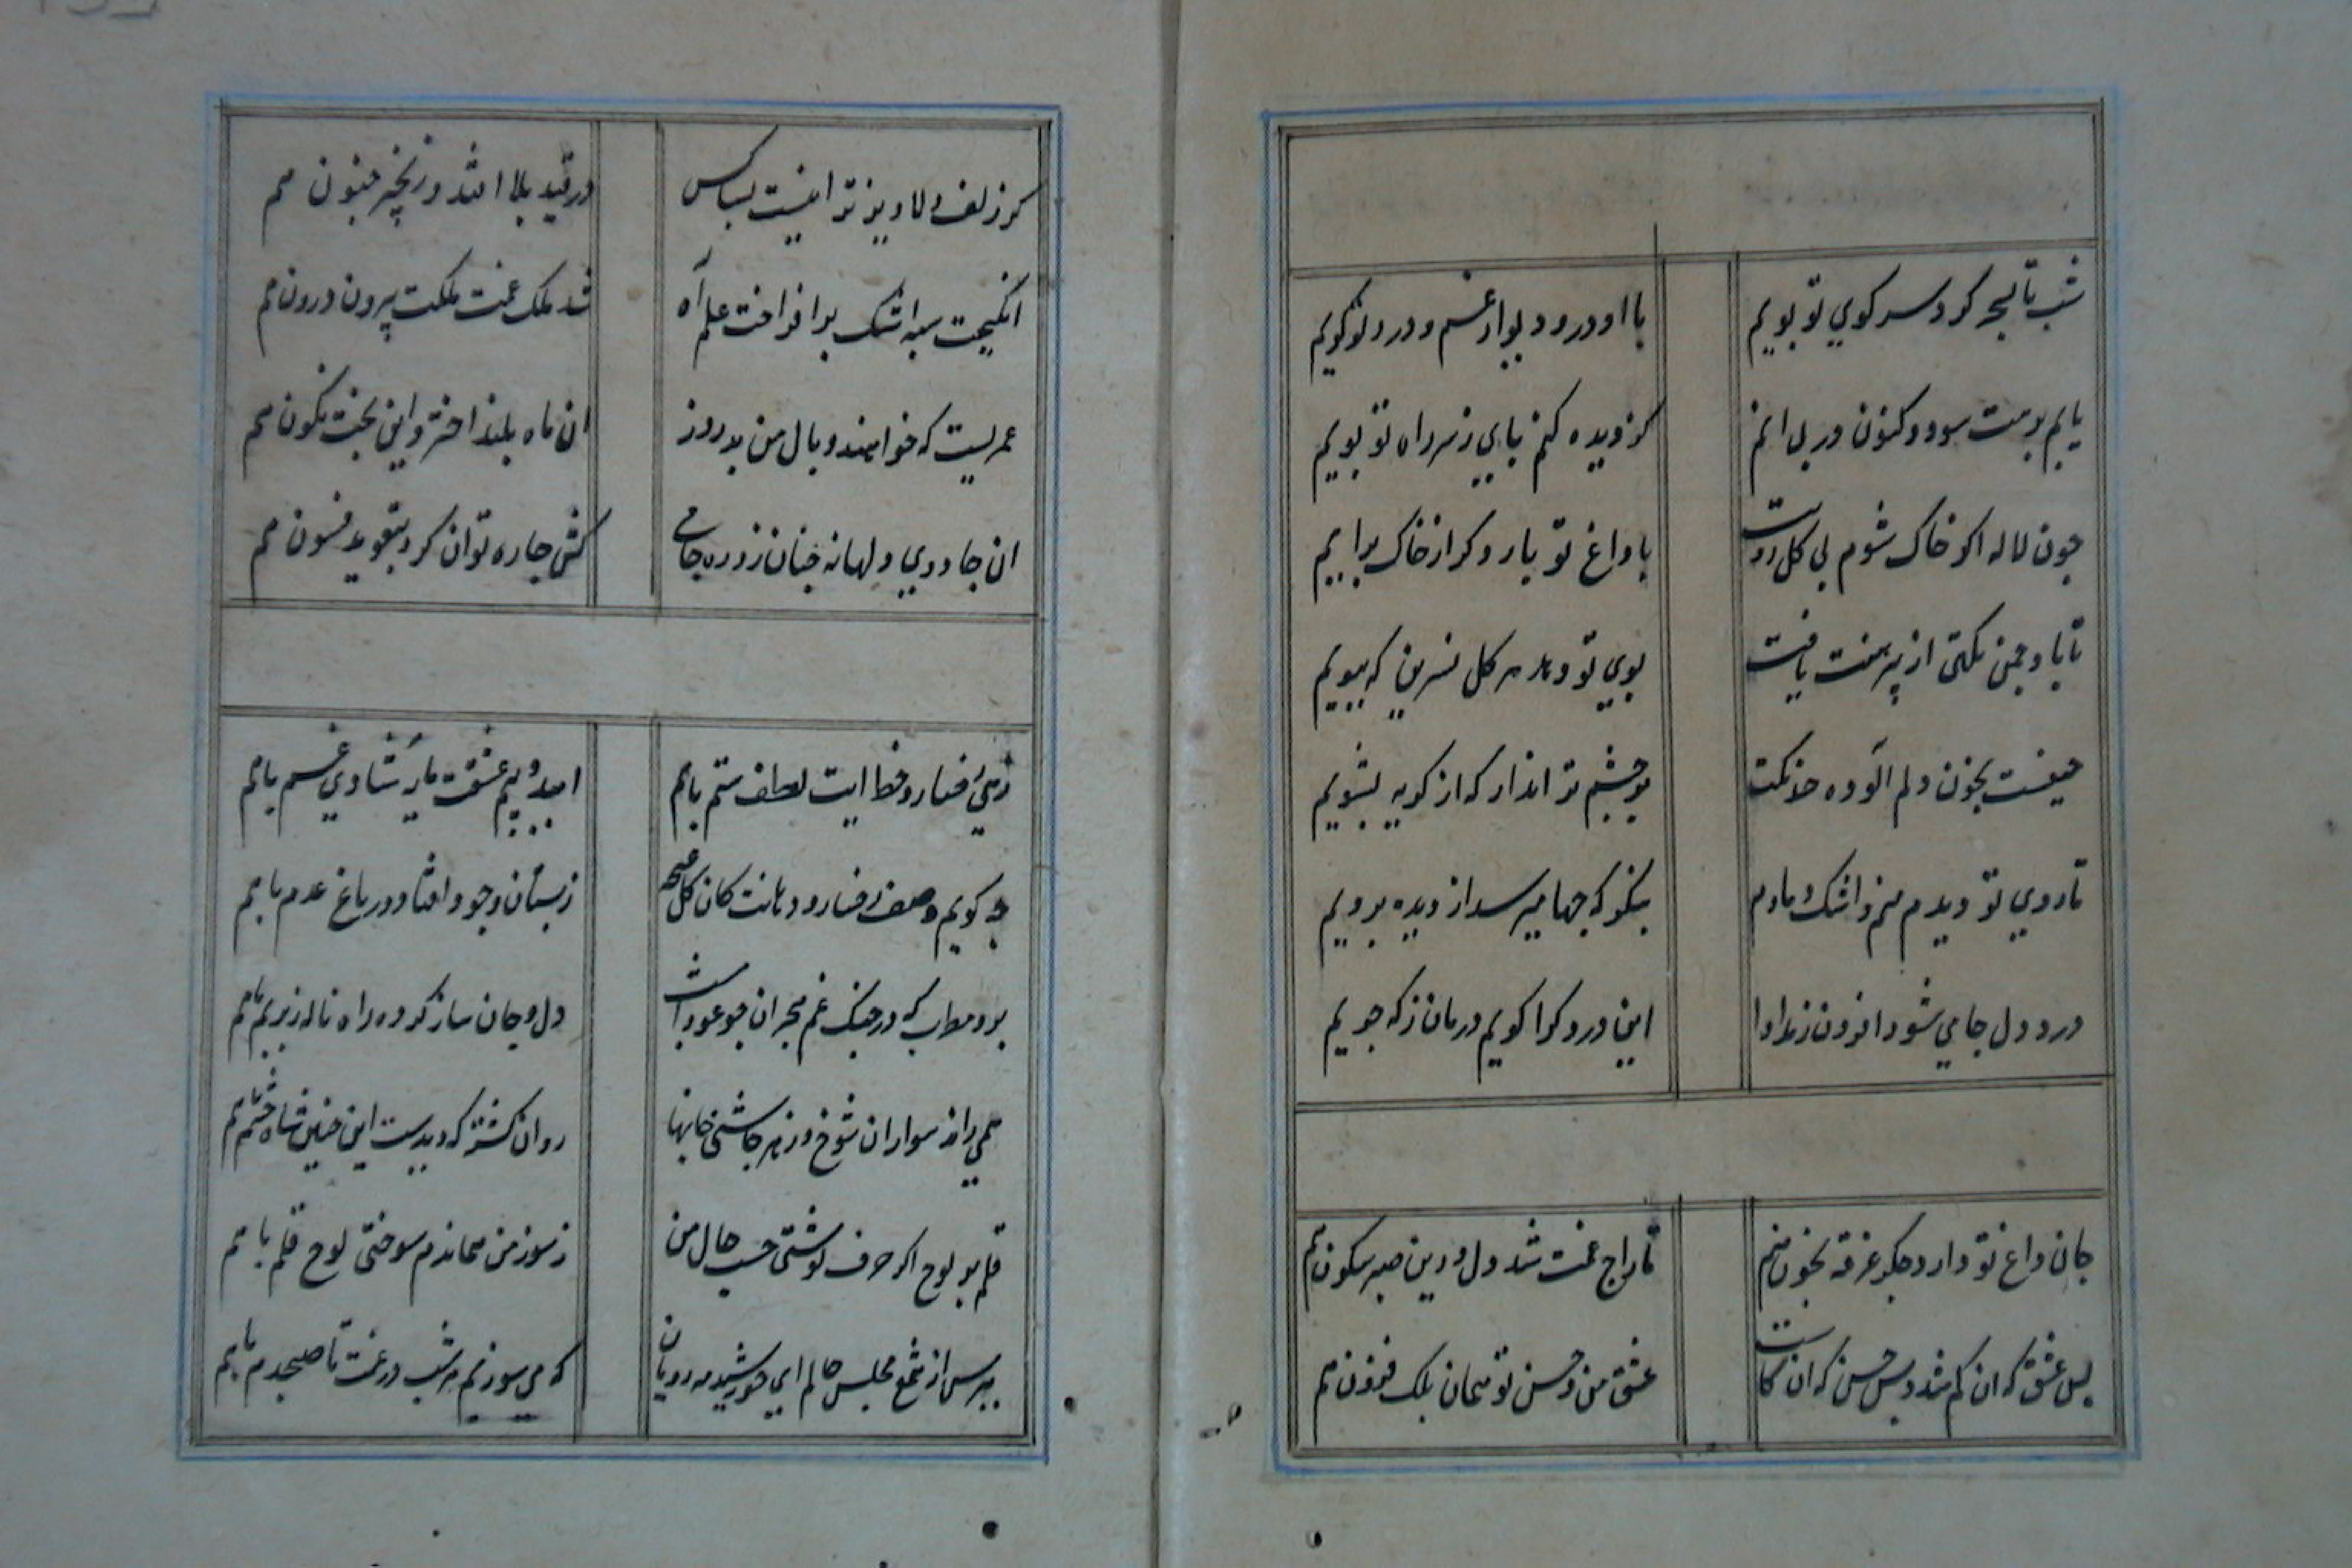 شب تا بسحر کرد سر کوی تو بویم
با او در و دیوار غم و درد تو کویم
پایم بر هت سود و کنون در پی انم
کز دیده کنم پای ز سر راه تو بویم
چون لاله اکر خاک شوم بی کل رویت
با داغ تو بار دکر از خاک برایم
تا باد چمن نکهتی از پیرهنت یافت
بوی تو دهد هر کل نسرین که ببویم
حیفست بخون دلم الوده خدنکت
بر چشم تر انداز که از کریه بشویم
تا روی تو دیدم منم و اشک دمادم
بنکر که چها میرسد از دیده برویم
درد دل جامی شود افزون ز مداوا
این درد کرا کویم درمان ز که جویم
جان داغ تو دارد جکر غرقه بخون هم
تاراج غمت شد دل و دین صبر سکون هم
بس عشق که ان کم شد و بس حسن که ان کاست
عشق من و حسن تو همان بلک فزون هم
کر زلف دلاویز تو اینست بسا کس
در قید بلا افتد و زنجیر جنون هم
انکیخت سپه اشک بر افراخت علم آه
شد ملک غمت مملکت بیرون درون هم
عمریست که خواهند وبال من بد روز
ان ماه بلند اختر و این بخت نکون هم
ان جادوی ولهانه چنان زد ره جامی
کش چاره توان کرد بتعوید فسون هم
زهی رخسار و خط ایت لطف ستم باهم
امید و بیم عشقت مایه شادی غم باهم
چه کویم وصف رخسار و دهانت کان کل غنچه
ز بستان وجود افتاد در باغ عدم باهم
برو مطرب که در چنک غم هجران چو عود اشب
دل و جان ساز کرده راه ناله زیر بم باهم
همی راند سوار ان شوخ و ز هر جاشنی جانها
روان کشته که دیدست این چنین شاه حشم باهم
قلم بر لوح اکر حرف نوشتی حسب حال من
ز سوز من نماندم سوختی لوح قلم باهم
بپرس از شمع مجلس حالم ای خورشید مه رویان
که می سوزیم هر شب در غمت تا صبحدم باهم